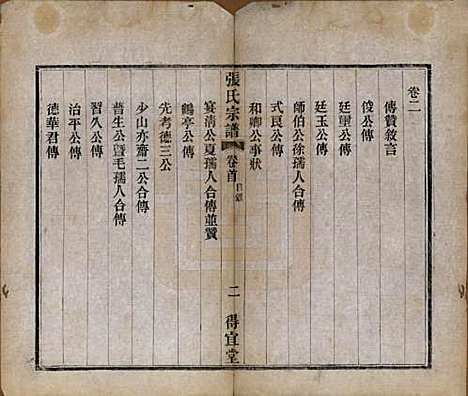 卷二
傳贊敘言
俊公傳
廷爵公傳
廷玉公傳
師伯公徐孺人合傳
式良公傳
和卿公事狀
張氏宗譜 卷首 目錄 二 得宜堂
宴清公夏孺人合傳並贊
鶴亭公傳
先考德三公
少山亦齋二公合傳
普生公暨毛孺人合傳
習久公傳
治平公傳
德華君傳